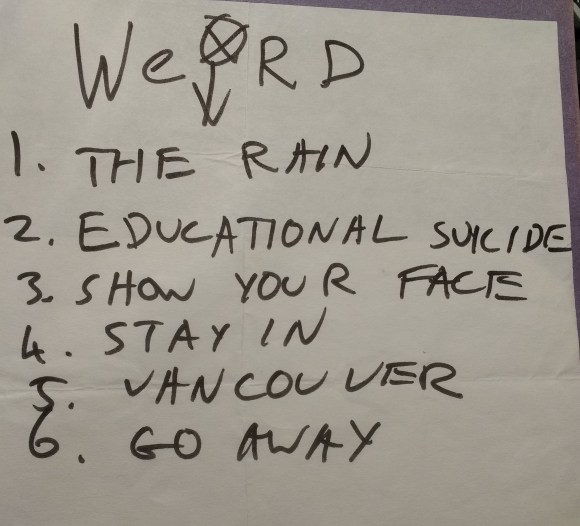 WeIRD
1. THE RAIN
2. EDUCATIONAL SUICIDE
3. SHOW YOUR FACE
4. STAY IN
5. VANCOUVER
6. GO AWAY